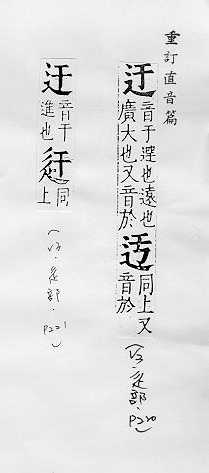 重訂直音篇
迂
音于避也遠也
廣大也又音於
同上又
音於
(V3.辵部.P220)
迀
音干
進也
同
上
(V3.辵部.P221)